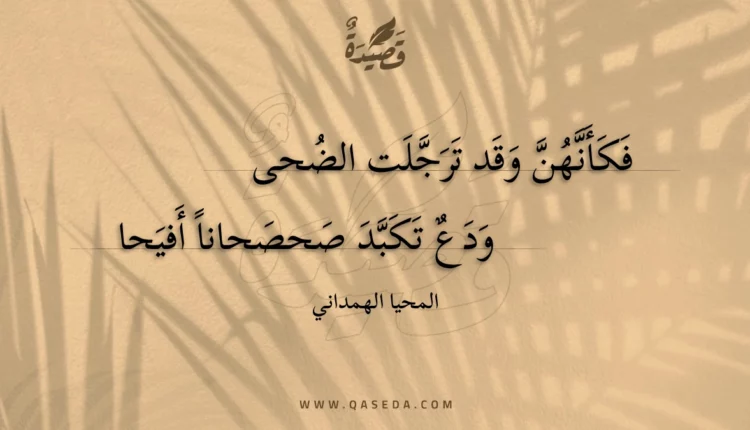 قَصِيْدَةٌ
فَكَأَنَّهُنَّ وَقَد تَرَجَّلَت الضُحى
وَدَعٌ تَكَبَّدَ صَحصَحاناً أَفيَحا
المحيا الهمداني
WWW.QASEDA.COM